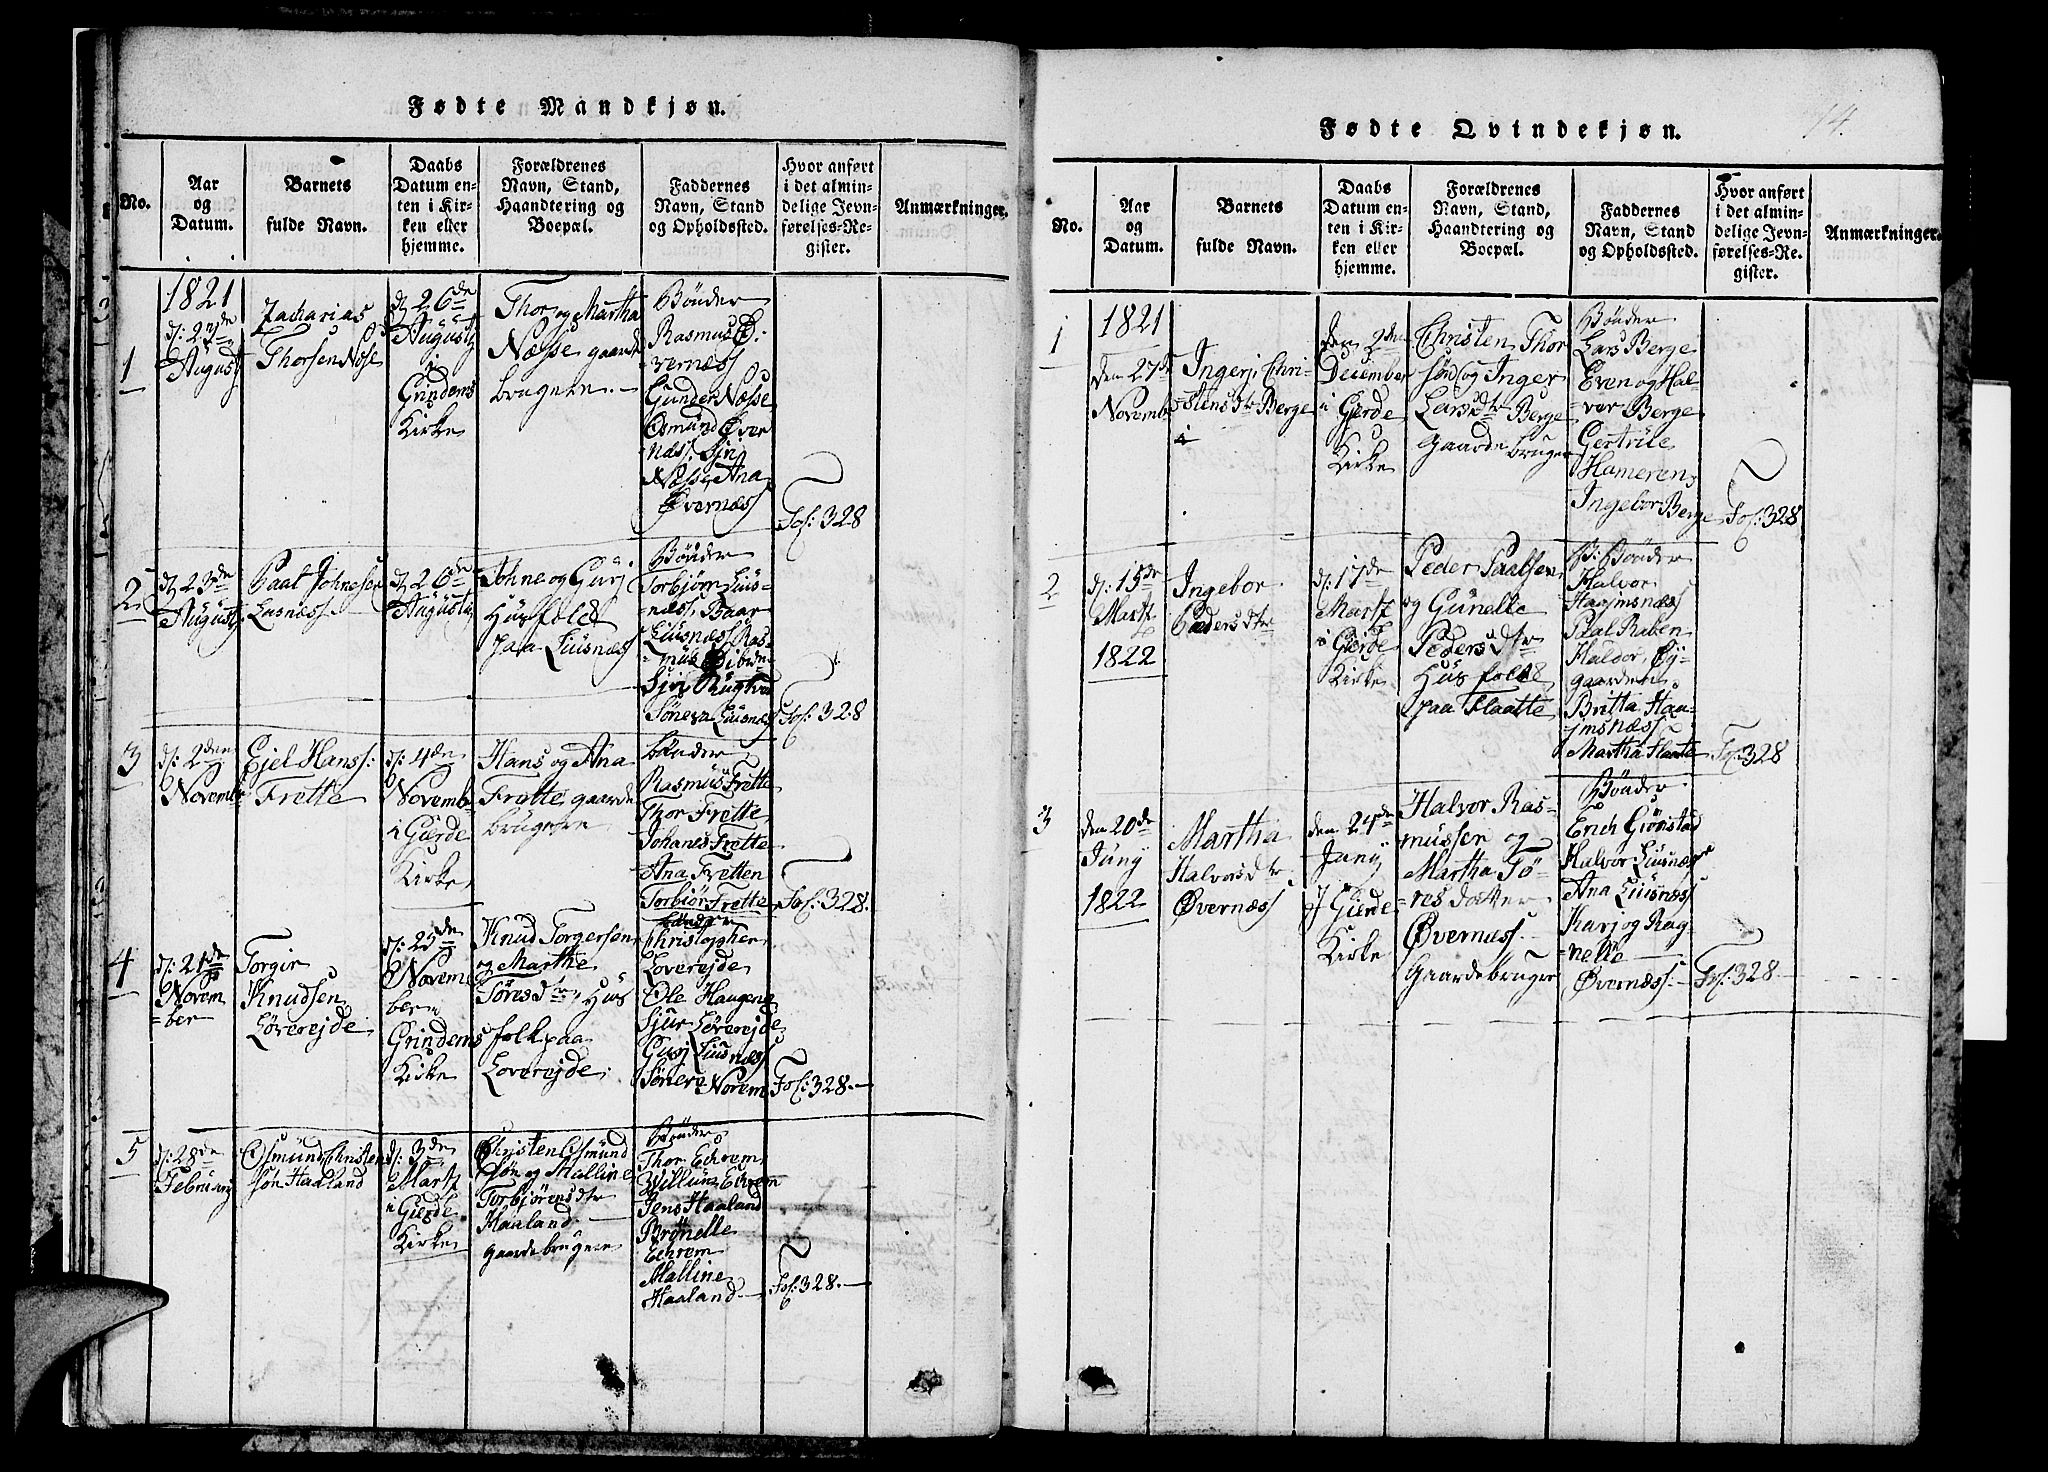 Fødte Mandkjøn.
No.
Aar
og
Datum.
Barnets
fulde Navn.
Daabs
Datum en-
ten i Kir-
ken eller
hjemme.
Forældrenes
Navn, Stand,
Haandtering og
Boepæl.
Faddernes
Navn, Stand
og Opholdssted.
Hvor anført
i det almin-
delige Jevn-
førelses-Re-
gister.
Anmærkninger.
1
1821
d: 23de
August
Zacharias
Thorsen Næse
d: 26de
Augusty
i
Grindens
Kirke
Thor og Martha
Næsse gaarde
brugere.
Bönder
Rasmus Ø:
vernæss
Gunder Næsse
Osmund Øver
næss: Sjri
Næsse, Ana
Øvernæss
Fol: 328
2
d: 23de
Augusty
Paal Johnesen
Lusnæss
d: 26de
Augusty
Johne og Gurj
Hüsfolk
paa Liusnæss
Bönder
Torbjörn Lius-
næss, Baar
Liusnæss Ras-
Sjri
Söneva Liusnæss
Fol: 328
3
d: 2den
Novemb
Ejel Hanss:
Frette
d: 4de
Novemb
i Gierde
Kirke
Hans og Ana
Frette gaarde
brugere
bönder
Rasmus Frette
Thor Frette
Johanes Frette
Ana Fretten
Torbiör Frette
Fol: 328.
4
d: 21de
Novem
=ber
Torgir
Knudsen
Löverejde
d: 25de
Novem
ber
Grindens
Kirke
Knud Torgersen
og Marthe
Töresdtr, Hüs
folk paa
Loverejde
bönder
Christopher
Loverejde
Ole Haugena
Sjur Löverejde
Gurj Liusnæss
Söneve Norem
Fol: 328.
5
d: 28de
February
Osmünd Christen
sön Haaland
d: 3de
Marty
i Gierde
Kirke
Christen Osmünd
sön og Malline
Torbjörensdtr
Haaland
gaardebrugere
Bönder
Thor Echrem
Villum Echrem
Jens Haaland
Brönelle
Echrem
Malline
Haaland.
Fol: 328.
14.
Fødte Qvindekjøn.
No.
Aar
og
Datum.
Barnets
fulde Navn.
Daabs
Datum en-
ten i Kir-
ken eller
hjemme.
Forældrenes
Navn, Stand,
Haandtering og
Boepæl.
Faddernes
Navn, Stand
og Opholdssted.
Hvor anført
i det almin-
delige Jevn-
førelses-Re-
gister.
Anmærkninger.
1
1821
den 27de
Novemb
Ingerj Chri-
stensdtr Berge
den 2den
December
i Gierde
Kirke
Christen Thor
sön og Inger
Larsdtr Berge
Gaardebruger
Bönder
Lars Berge
Even og Hal-
=vor Berge
Gertrüe
Hameren
Ingebor Berge
Fol: 328
2
d: 15de
Marty
1822
Ingebor
Pedersdtr
d: 17de
Marty
i Gierde
Kirke
Peder Paulsen
og Günelle
Pedersdtr
Hüsfolk
paa Flaatte
Bönder
Halvor
Haajmsnæss
Paal Raben
Halvor Øy-
gaarden
Britta Haa-
jmsnæss
Martha Flaate
Fol: 328
3
den 20de
Juny
1822
Martha
Halvorsdtr
Øvernæss
den 24de
Juny
J Gierde
Kirke
Halvor Ras-
mussen og
Martha Tö-
=res datter
Øvernæss
Gaardebruger
Bönder
Erich Giönstad
Halvor Liusnæss
Ana Liusnæss
Karj og Rag
nelle
Øvernæss.
Fol: 328.